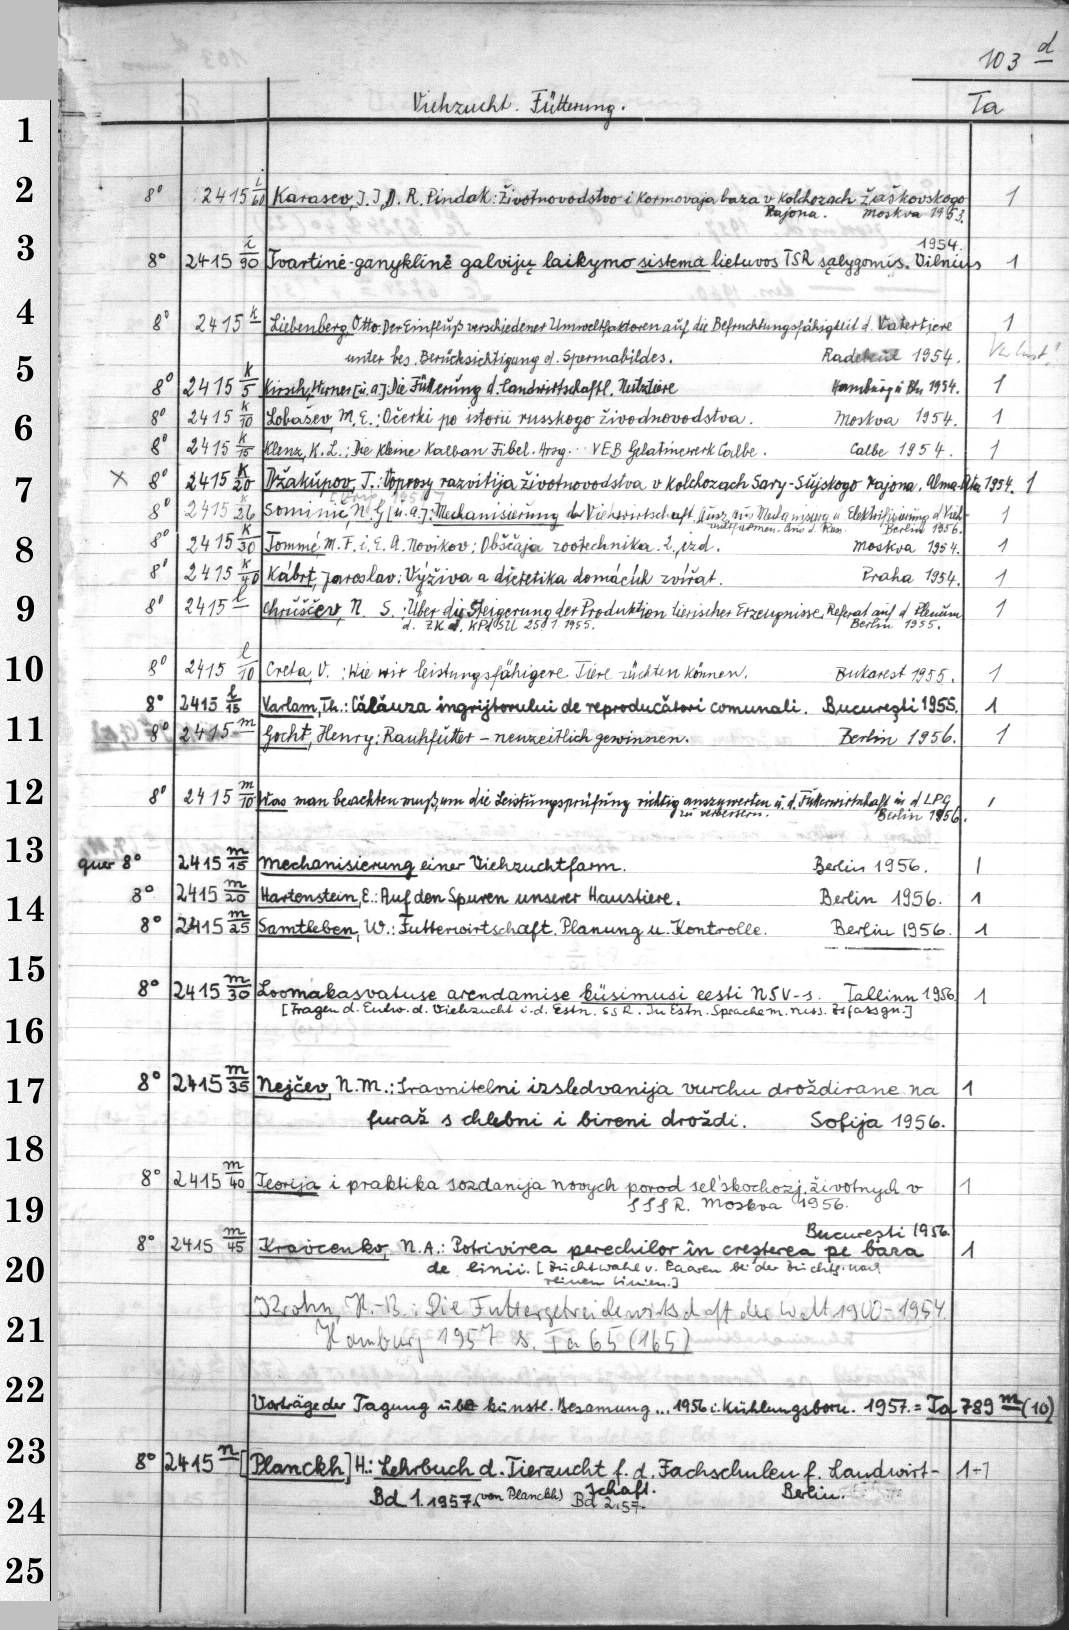 103 d
Viehzucht. Fütterung. Ta
1
2
8° 2415 i/60 Karasev, I. I., D. R. Pindak: Životnovodstvo i kormovaja baza v kolchozach Žaškovskogo 1
Rajona. Moskva 1953.
3
1954.
8° 2415 i/90 Tvartinė-ganyklinė galvijų laikymo sistema lietuvos TSR sąlygomis. Vilnius 1
4
8° 2415 k Liebenberg, Otto: Der Einfluß verschiedener Umweltfaktoren auf die Befruchtungsfähigkeit d. Vatertiere 1
unter bes. Berücksichtigung d. Spermabildes. Radebeul 1954. Verlust!
5
8° 2415 k/5 Kirsch, Werner [u.a.]: Die Fütterung d. Landwirtschaftl. Nutztiere Hamburg u. Bln. 1954. 1
6
8° 2415 k/10 Lobašev, M. E.: Očerki po istorii russkogo živodnovodstva. Moskva 1954. 1
8° 2415 k/15 Klenz, K. L.: Die kleine Kalban Fibel. Hrsg. VEB Gelatinewerk Calbe. Calbe 1954. 1
7
× 8° 2415 k/20 Džakupov, T.: Voprosy razvitija životnovodstva v kolchozach Sary-Sujskogo rajona. Alma-Ata 1954. 1
8° 2415 k/26 Sominič, N. G. [u.a.]: Mechanisierung der Viehwirtschaft. u. Elektrifizierung d. Vieh- 1
aus d. Russ. Berlin 1956.
8
8° 2415 k/30 Tommė, M. F. i. E. A. Novikov: Obščaja zootechnika. 2. izd. Moskva 1954. 1
8° 2415 k/40 Kábrt, Jaroslav: Výživa a dietetika domácích zvířat. Praha 1954. 1
9
8° 2415 l Chruščev, N. S.: Über die Steigerung der Produktion tierischer Erzeugnisse. Referat auf d. Plenum 1
d. ZK d. KPdSU 25.1.1955. Berlin 1955.
10
8° 2415 l/10 Creta, V.: Wie wir leistungsfähigere Tiere züchten können. Bukarest 1955. 1
8° 2415 l/15 Varlam, Th.: Călăuza îngrijtorului de reproducători comunali. Bucureşti 1955. 1
11
8° 2415 m Gocht, Henry: Rauhfutter – neuzeitlich gewinnen. Berlin 1956. 1
12
8° 2415 m/10 Was man beachten muß, um die Leistungsprüfung richtig auszuwerten u. d. Futterwirtschaft in d LPG 1
zu verbessern. Berlin 1956.
13
quer 8° 2415 m/15 Mechanisierung einer Viehzuchtfarm. Berlin 1956. 1
14
8° 2415 m/20 Hartenstein, E.: Auf den Spuren unserer Haustiere. Berlin 1956. 1
8° 2415 m/25 Samtleben, W.: Futterwirtschaft. Planung u. Kontrolle. Berlin 1956. 1
15
8° 2415 m/30 Loomakasvatuse arendamise küsimusi eesti NSV-s. Tallinn 1956 1
[Fragen d. Entw. d. Viehzucht i. d. Estn. SSR. In Estn. Sprache m. russ. Zsfassgn.]
16
17
8° 2415 m/35 Nejčev, N. M.: Sravnitelni izsledvanija vurchu droždirane na 1
furaž s chlebni i bireni droždi. Sofija 1956.
18
8° 2415 m/40 Teorija i praktika sozdanija novych porod sel'skochozj. životnych v 1
19
SSSR. Moskva 1956.
Bucureşti 1956.
8° 2415 m/45 Kravcenko, N. A.: Potrivirea perechilor în creşterea pe baza 1
20
de linii. [Zuchtwahl v. Paaren bei der Züchtg. nach
reinen Linien.]
Krohn, H.-B.: Die Futtergetreidewirtschaft der Welt 1900-1954
21
Hamburg 1957 s. Ta 65 (165)
22
Vorträge der Tagung über künstl. Besamung... 1956 i. Kühlungsborn. 1957. = Ta 789 m (10)
23
8° 2415 n [Planckh,] H.: Lehrbuch d. Tierzucht f. d. Fachschulen f. Landwirt- 1+1
schaft. Berlin.
24
Bd 1. 1957. (von Planckh) Bd 2. 57.
25